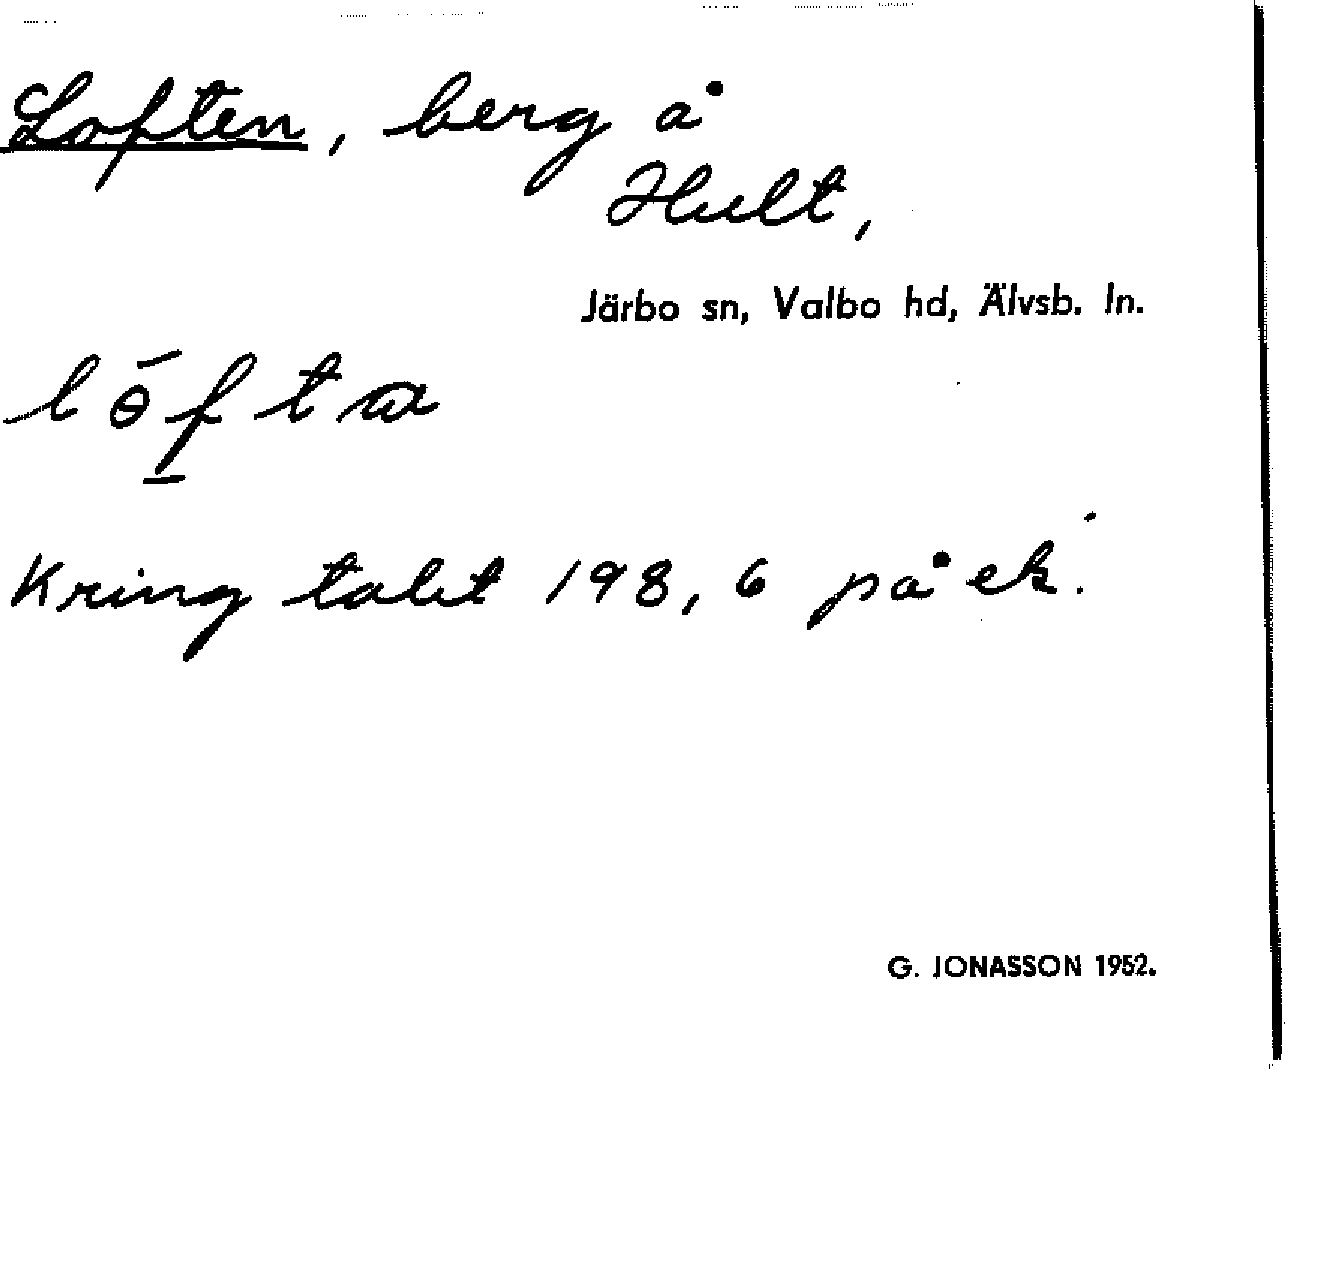 Loften, berg å
Hult,
Järbo sn, Valbo hd, Älvsb. ln.
Kring talet 198, 6 på ek.
G. JONASSON 1952.